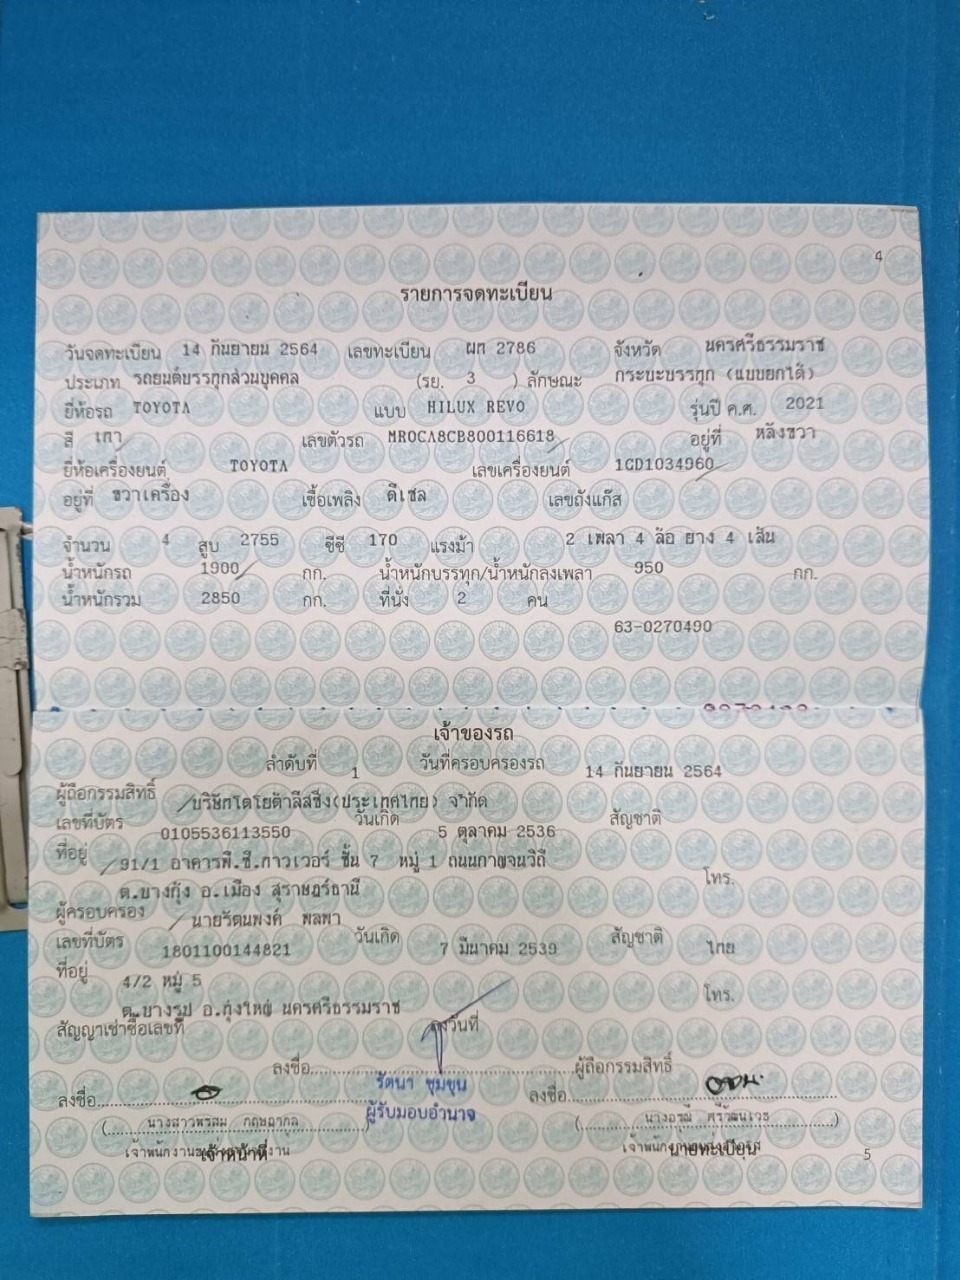 4
รายการจดทะเบียน
วันจดทะเบียน 14 กันยายน 2564 เลขทะเบียน ผก 2786 จังหวัด นครศรีธรรมราช
ประเภท รถยนต์บรรทุกส่วนบุคคล (รย. 3 ) ลักษณะ กระบะบรรทุก (แบบยกได้)
ยี่ห้อรถ TOYOTA แบบ HILUX REVO รุ่นปี ค.ศ. 2021
สี เทา เลขตัวรถ MR0CA8CB800116618 อยู่ที่ หลังขวา
ยี่ห้อเครื่องยนต์ TOYOTA เลขเครื่องยนต์ 1GD1034960
อยู่ที่ ขวาเครื่อง เชื้อเพลิง ดีเซล เลขถังแก๊ส
จำนวน 4 สูบ 2755 ซีซี 170 แรงม้า 2 เพลา 4 ล้อ ยาง 4 เส้น
น้ำหนักรถ 1900 กก. น้ำหนักบรรทุก/น้ำหนักลงเพลา 950 กก.
น้ำหนักรวม 2850 กก. ที่นั่ง 2 คน
63-0270490
เจ้าของรถ
ลำดับที่ 1 วันที่ครอบครองรถ 14 กันยายน 2564
ผู้ถือกรรมสิทธิ์ บริษัทโตโยต้าลีสซิ่ง(ประเทศไทย) จำกัด
เลขที่บัตร 0105536113550 วันเกิด 5 ตุลาคม 2536 สัญชาติ
ที่อยู่ 91/1 อาคารพี.ซี.ทาวเวอร์ ชั้น 7 หมู่ 1 ถนนกาญจนวิถี
ต.บางกุ้ง อ.เมือง สุราษฎร์ธานี โทร.
ผู้ครอบครอง นายรัตนพงค์ พลพา
เลขที่บัตร 1801100144821 วันเกิด 7 มีนาคม 2539 สัญชาติ ไทย
ที่อยู่ 4/2 หมู่ 5
ต.บางรูป อ.ทุ่งใหญ่ นครศรีธรรมราช โทร.
สัญญาเช่าซื้อเลขที่ ลงวันที่
ลงชื่อ ผู้ถือกรรมสิทธิ์
รัตนา ชุมขุน
ผู้รับมอบอำนาจ
ลงชื่อ ลงชื่อ
(นางสาวพรสม กฤษฎากุล) (นางอรุณี ศรีวัฒนเวช)
เจ้าหน้าที่ นายทะเบียน
5